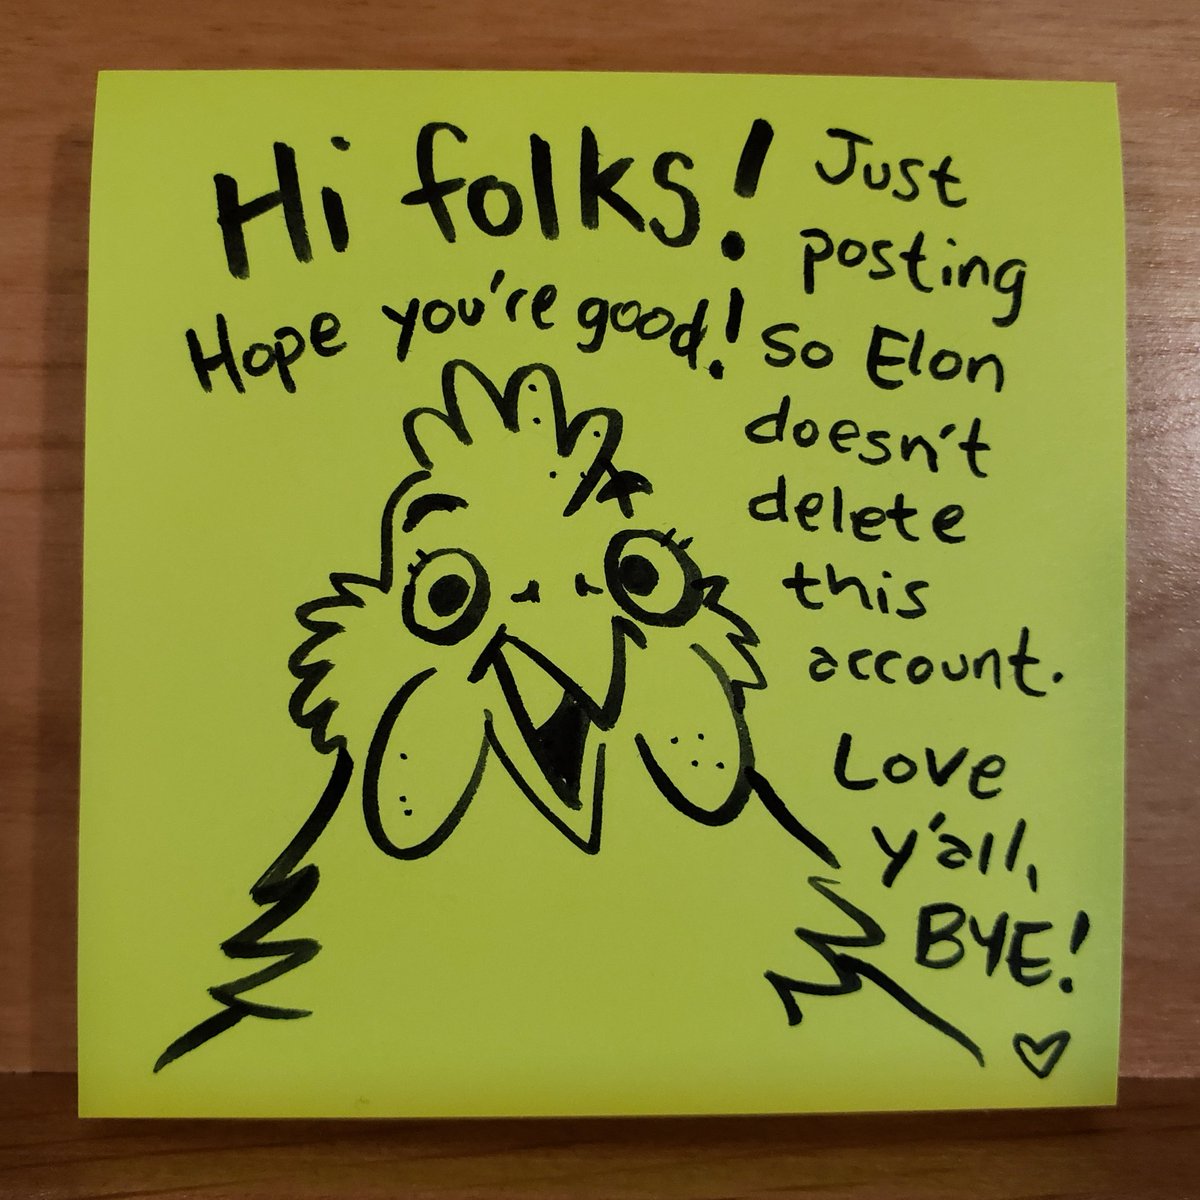 Hi folks!
Hope you're good!
Just
posting
so Elon
doesn't
delete
this
account.
Love
y'all,
BYE!